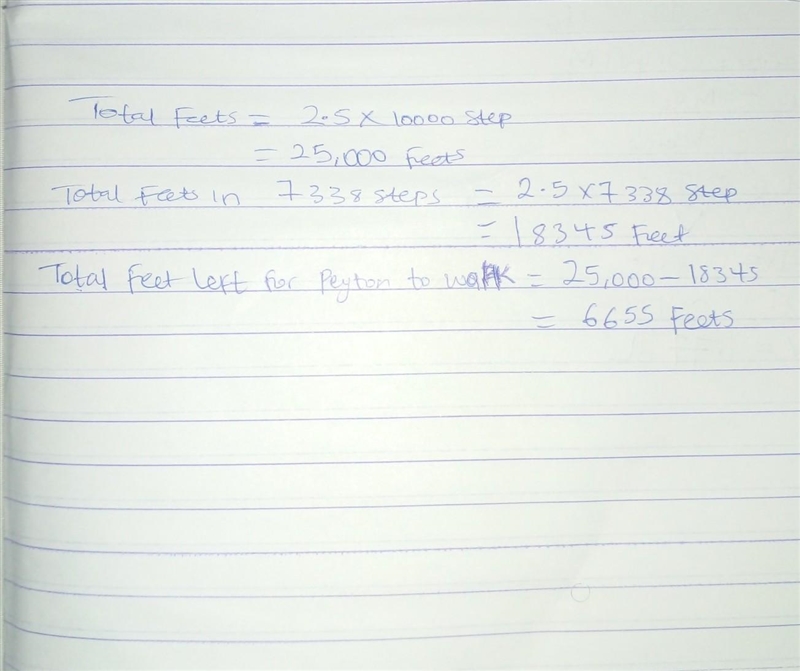 Total Feets = 2.5 × 10000 step
= 25,000 Feets
Total Feets in 7338 steps = 2.5 × 7338 step
= 18345 Feet
Total Feet Left for Peyton to walk = 25,000 - 18345
= 6655 Feets